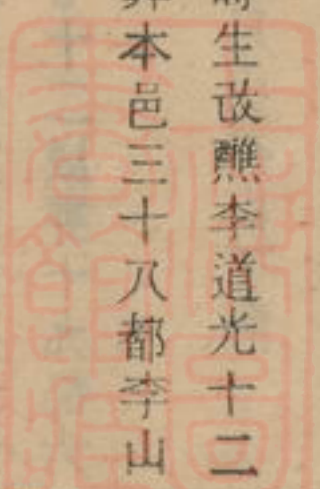 生改醮李道光十二
本邑三十八都李山